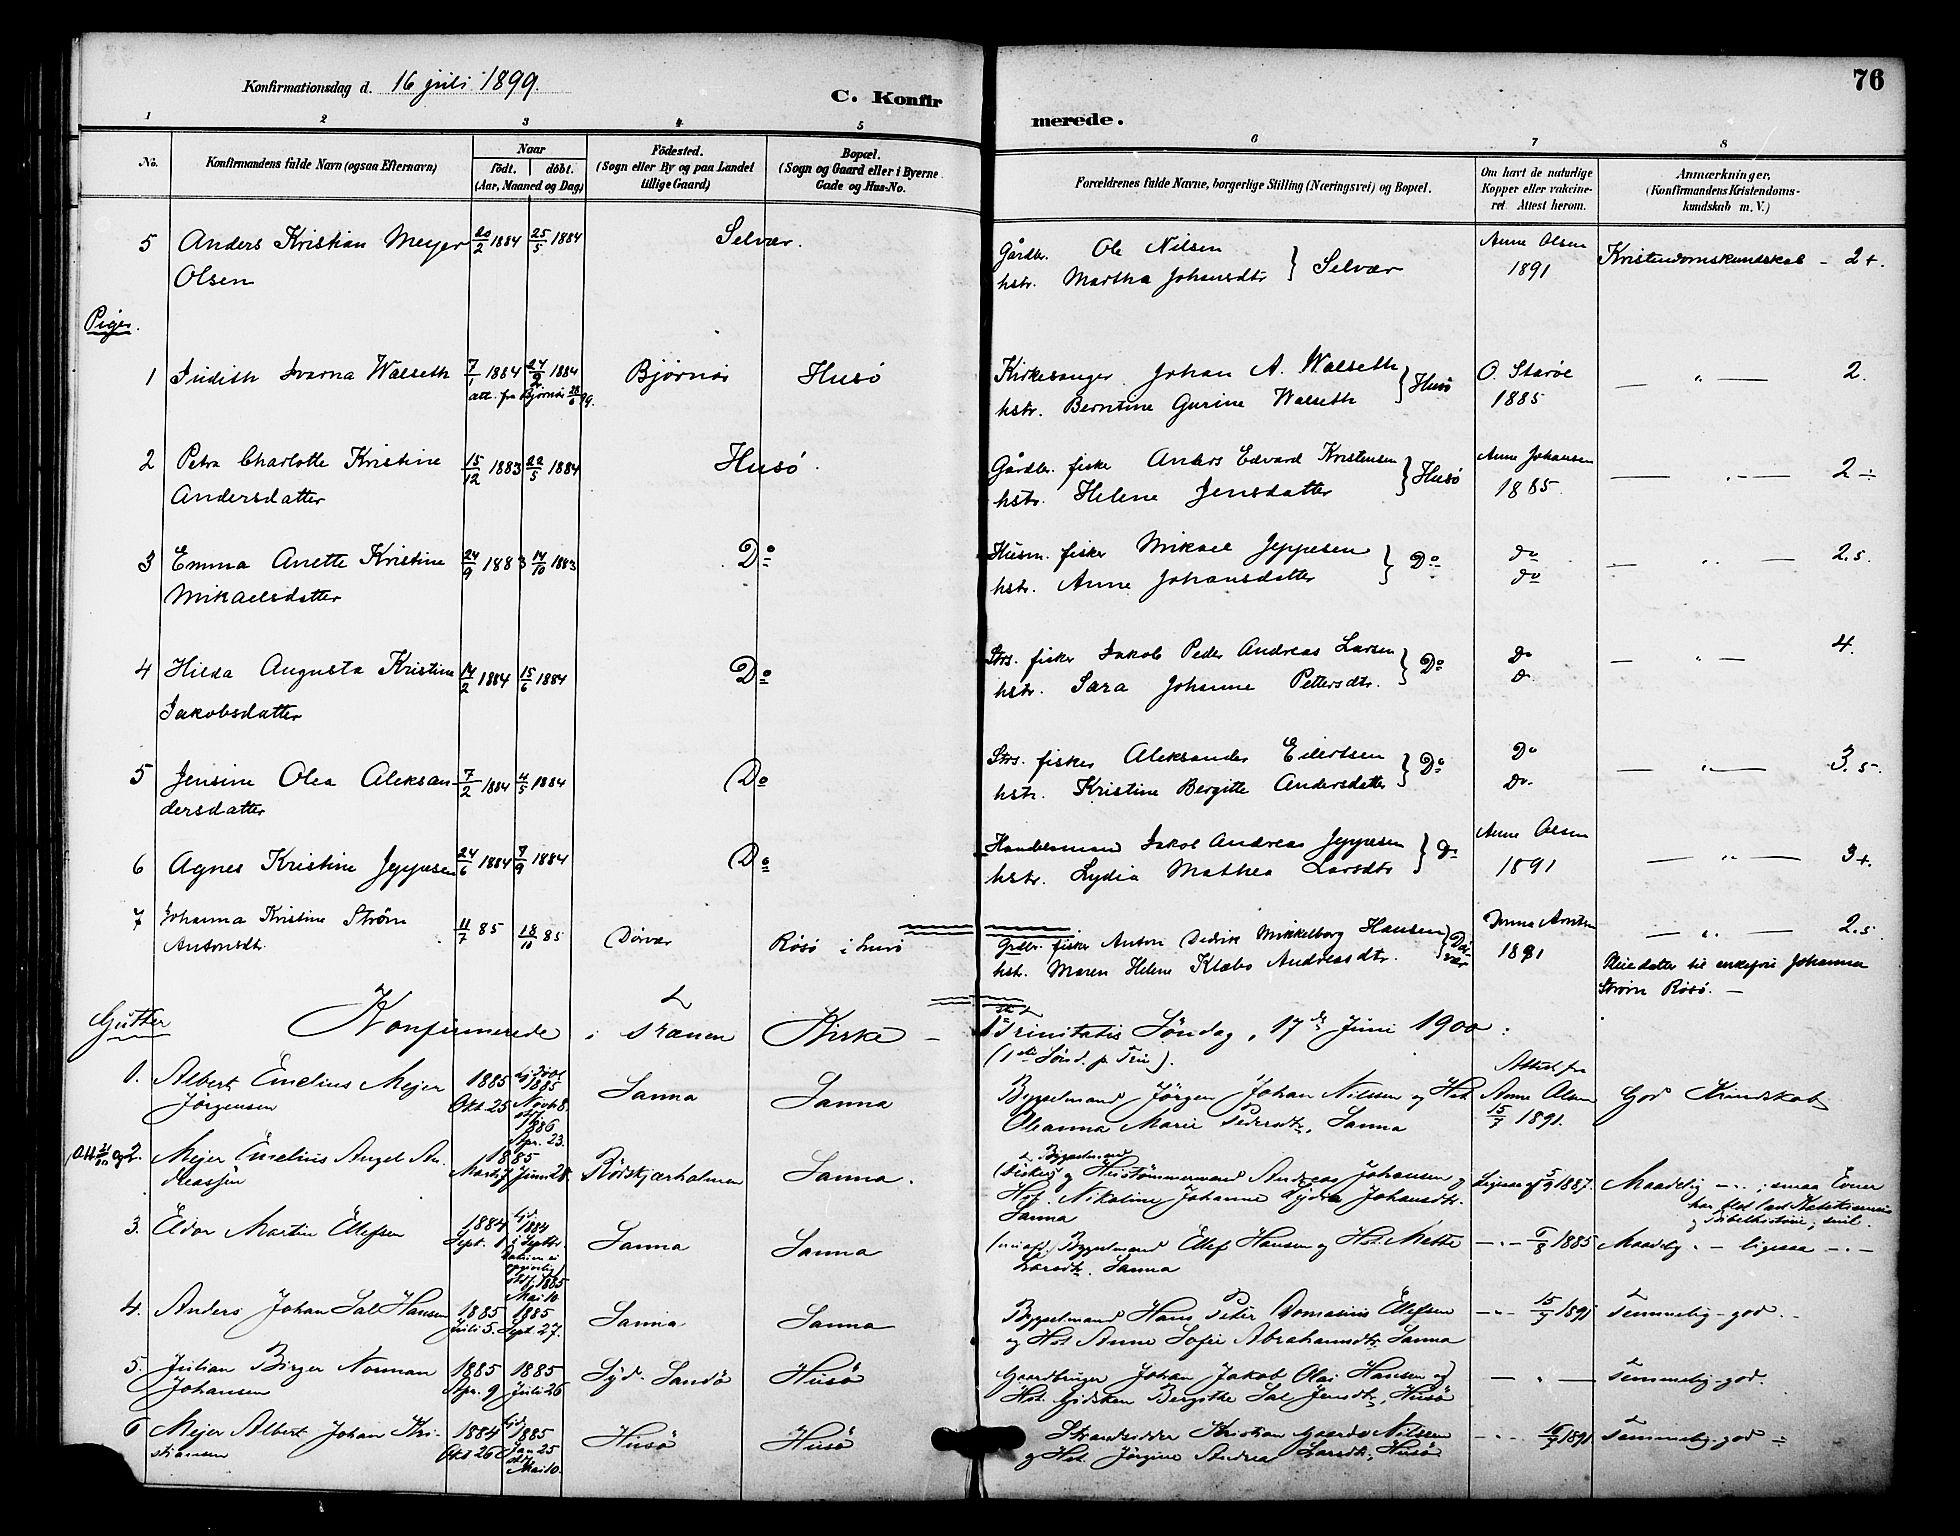 76
Konfirmationsdag d. 16 juli 1899.
C. Konfirmerede.
1 2 3 4 5 6 7 8
No.
Konfirmandens fulde Navn (ogsaa Efternavn)
Naar
født. døbt.
(Aar, Maaned og Dag)
Fødested.
(Sogn eller By og paa Landet
tillige Gaard)
Bopæl.
(Sogn og Gaard eller i Byerne
Gade og Hus-No.
Forældrenes fulde Navne, borgerlige Stilling (Næringsvei) og Bopæl.
Om havt de naturlige
Kopper eller vakcine-
ret. Attest herom.
Anmærkninger,
(Konfirmandens Kristendoms-
kundskab m. V.)
5 Anders Kristian Meyer 20/2 1884 25/5 1884 Selvær. Gårdbr. Ole Nilsen } Selvær Anne Olsen Kristendomskundskab - 2+.
Olsen hstr. Martha Johansdtr 1891
Piger.
1 Judith Ivarna Walseth 7/1 1884 24/2 1884 Bjørnør Husø Kirkesanger Johan A. Walseth } Husø O. Starøe — " — 2.
att. fra Bjørnør 28/6 99. hstr. Berntine Gurine Walseth 1885
2 Petra Charlotte Kristine 15/12 1883 22/5 1884 Husø. Gårdbr. fisker Anders Edvard Kristensen } Husø Anne Johansen — " — 2 ÷
Andersdatter hstr. Helene Jensdatter 1885.
3 Emma Anette Kristine 24/9 1883 14/10 1883 Do Husm. fisker Mikael Jeppesen } Do do — " — 2.5.
Mikaelsdatter hstr. Anne Johansdatter do
4 Hilda Augusta Kristine 14/2 1884 15/6 1884 Do Strs. fisker Jakob Peder Andreas Larsen } Do Do — " — 4.
Jakobsdatter hstr. Sara Johanne Pettersdtr. Do
5 Jensine Olea Aleksan 7/2 1884 4/5 1884 Do Strs. fisker Aleksander Eilertsen } Do Do — " — 3.5.
dersdatter hstr. Kristine Bergitte Andersdatter Do.
6 Agnes Kristine Jeppesen 24/6 1884 7/9 1884 Do Handelsmand Jakob Andreas Jeppesen } Do Anne Olsen — " — 3+.
hstr. Lydia Mathea Larsdtr 1891
7 Johanna Kristine Strøm 11/7 85 18/10 85 Dørvær Røsø i Husø Grdbr. fisker Anton Dedrik Mikkelborg Hansen } Dørvær 1891 — " — 2.5
Antonsdtr. hst. Maren Helene Klæbo Andreasdtr. Pleiedatter til enkefru Johanna
Strøm Røsø. —
Gutter Konfirmerede i Trænen Kirke — Trinitatis Søndag, 17de Juni 1900:
(1ste Sønd. p. Trin).
1. Albert Emelius Mejer 1885 Okt. 25 1885 Novb 8. 1886 Apr. 23. Sanna Sanna Bygselmand Jörgen Johan Nilssen og Hst. Attest fra Anne Olsen God Kundskab
Jörgensen Oleanna Marie Pedersdtr, Sanna 15/7 1891.
2. Mejer Emelius Angel An- 1885 Marts 7 Juni 28. Rödskjærholmen Sanna. Bygselmand
dreassen (Fisker og Hustømmermand Andreas Johansen og Ligesaa 5/9 1887. Maadelig — ; smaa Evner
Hst. Nikoline Johanne Lydia Johansdtr. har blot læst Katekismus
Sanna og Bibelhistorie; snil.
3. Eldor Martin Ellefsen 1884 Sept. 1 1884 i Septbr. 1885 Mai 10. Sanna Sanna Bygselmand Ellef Hansen og Hst. Mette — " — 8 1885 Maadelig — ligesaa — " —
Larsdtr. Sanna
4. Anders Johan Sal Hansen 1885 Juli 5. 1885 Sept. 27. Sanna Sanna Bygselmand Hans Peter Domasius Ellefsen — " — 15/7 1891 Temmelig god.
og Hst. Anne Sofie Abrahamsdtr. Sanna
5. Julian Birger Norman 1885 Apr. 9 1885 Juli 26 Syd. Sandö Husø Gaardbruger Johan Jakob Olai Hansen og — " — Temmelig god.
Johansen Hst. Gidsken Bergithe Sal Jensdtr, Husø
6 Mejer Albert Johan Kri- 1884 Okt 26 1885 Jan 25 Mai 10. Husø Husø Strandsidder Kristian Nilssen — " — 1891 Temmelig god ÷
stiansen og Hst. Jörgine Andrea Larsdtr, Husø